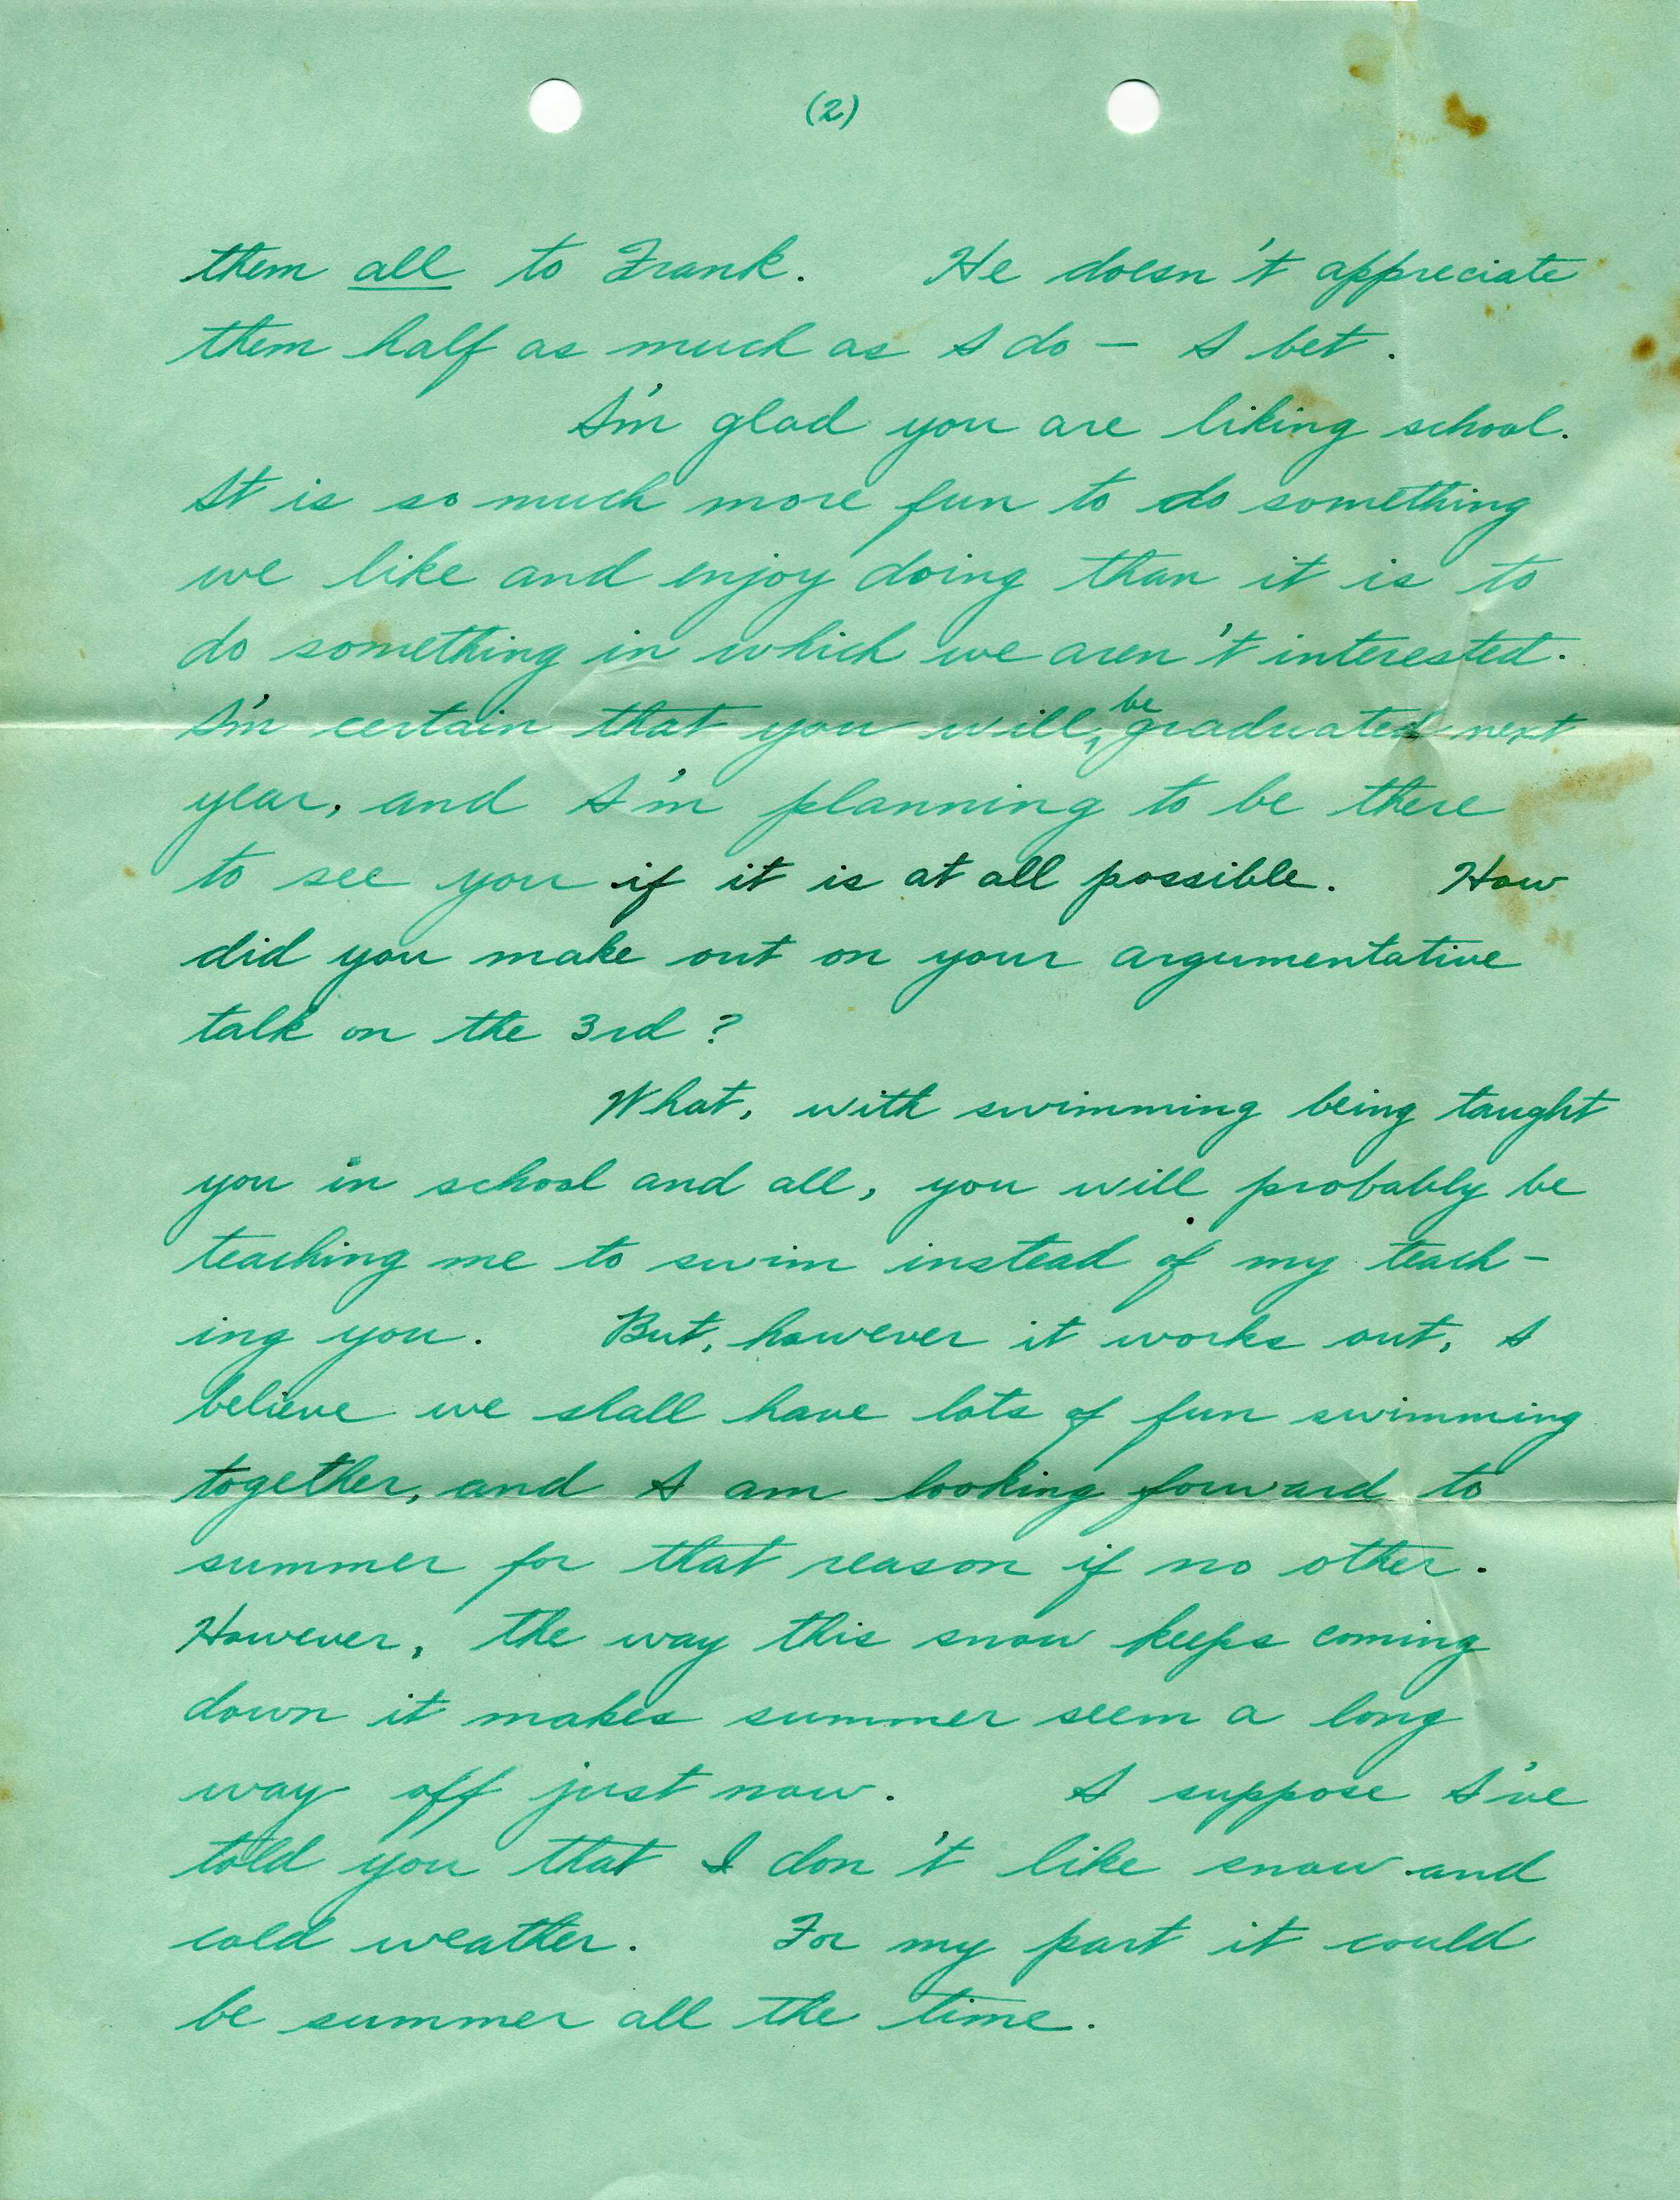 (2)
them all to Frank. He doesn't appreciate
them half as much as I do - I bet.
I'm glad you are liking school.
It is so much more fun to do something
we like and enjoy doing than it is to
do something in which we aren't interested.
I'm certain that you will be graduated next
year, and I'm planning to be there
to see you if it is at all possible. How
did you make out on your argumentative
talk on the 3rd?
What, with swimming being taught
you in school and all, you will probably be
teaching me to swim instead of my teach-
ing you. But, however it works out, I
believe we shall have lots of fun swimming
together, and I am looking forward to
summer for that reason if no other.
However, the way this snow keeps coming
down it makes summer seem a long
way off just now. I suppose I've
told you that I don't like snow and
cold weather. For my part it could
be summer all the time.